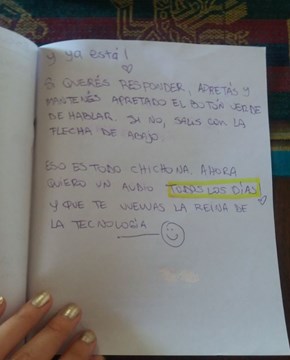 y ya está!
SI QUERÉS RESPONDER, APRETÁS Y
MANTENÉS APRETADO EL BOTÓN VERDE
DE HABLAR. SI NO, SALÍS CON LA
FLECHA DE ABAJO.
ESO ES TODO CHICHONA. AHORA
QUIERO UN AUDIO TODOS LOS DÍAS
Y QUE TE VUELVAS LA REINA DE
LA TECNOLOGÍA